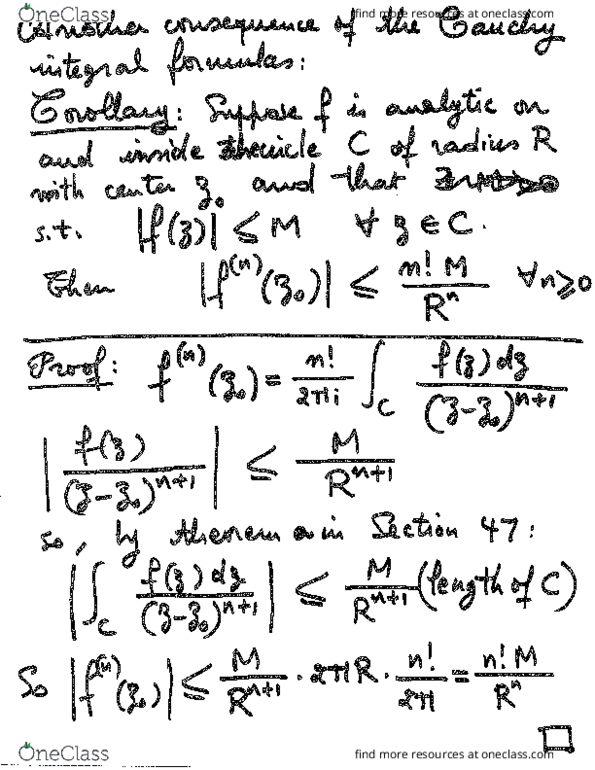 OneClass find more resources at oneclass.com
Another consequence of the Cauchy
integral formulas:
Corollary: Suppose f is analytic on
and inside the circle C of radius R
with center z₀ and that ∃ M>0
s.t. |f(z)| ≤ M ∀ z ∈ C.
Then |f⁽ⁿ⁾(z₀)| ≤ n! M / Rⁿ ∀n≥0
Proof: f⁽ⁿ⁾(z₀) = n!/2πi ∫_C f(z) dz / (z-z₀)ⁿ⁺¹
|f(z) / (z-z₀)ⁿ⁺¹| ≤ M / Rⁿ⁺¹
so, by theorem in Section 47:
|∫_C f(z) dz / (z-z₀)ⁿ⁺¹| ≤ M / Rⁿ⁺¹ (length of C)
So |f⁽ⁿ⁾(z₀)| ≤ M / Rⁿ⁺¹ · 2πR · n!/2π = n! M / Rⁿ
OneClass find more resources at oneclass.com